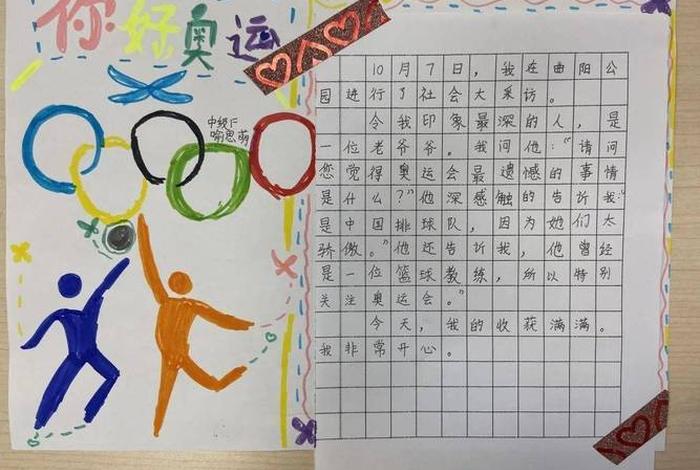 你好奥运
中级F
喻思萌
10月7日，我在曲阳公
园进行了社会大采访。
令我印象最深的人，是
一位老爷爷。我问他：“请问
您觉得奥运会最遗憾的事情
是什么？”他深感触的告诉我：“
是中国排球队，因为她们太
骄傲。”他还告诉我，他曾经
是一位篮球教练，所以特别
关注奥运会。”
今天，我的收获满满。
我非常开心。